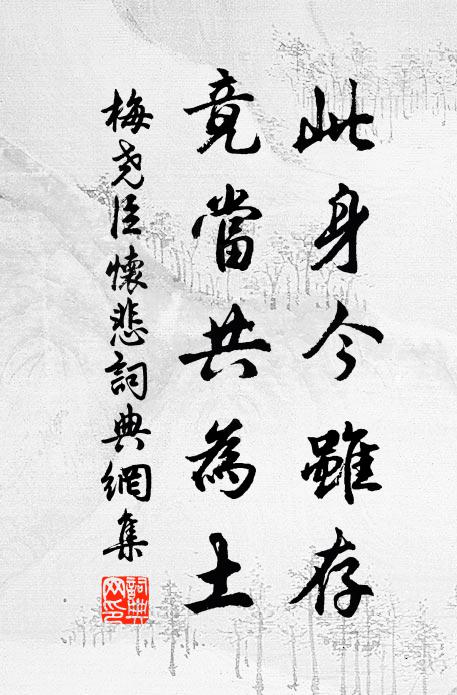 此身今雖存
竟當共為土
梅尧臣懷悲詞典網集
詞典
网印